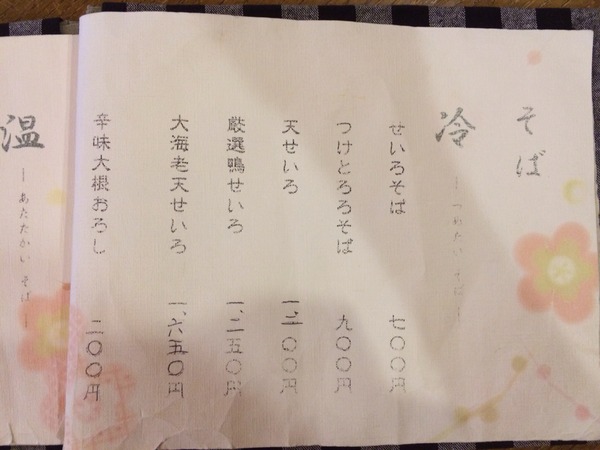 そば
冷
― つめたいそば ―
せいろそば 七〇〇円
つけとろろそば 九〇〇円
天せいろ 一、二〇〇円
厳選鴨せいろ 一、二五〇円
大海老天せいろ 一、六五〇円
辛味大根おろし 二〇〇円
温
― あたたかいそば ―